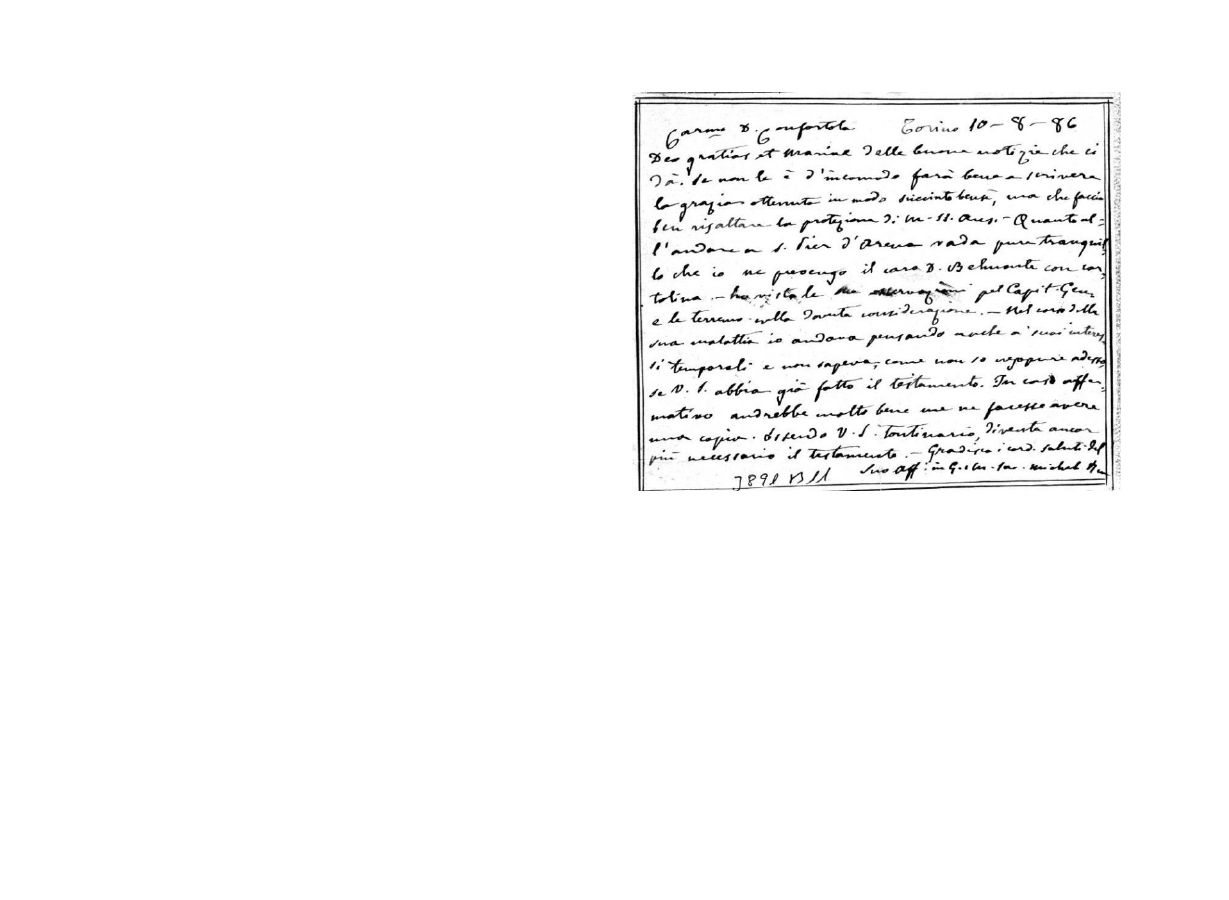 Carmo D. Confortola Torino 10-8-86
Deo gratias et Mariae delle buone notizie che ci
dà. Se non le è d'incomodo farà bene a scrivere
la grazia ottenuta in modo succinto bensì, ma che faccia
ben risaltare la protezione di M. SS. Aus. - Quanto al-
l'andare a S. Pier d'Arena vada pure tranquil-
lo che io ne prevengo il caro D. Belmonte con car-
tolina. - ho vista le osservazioni pel Capit. Gen.
e le terremo nella dovuta considerazione. - Nel corso della
sua malattia io andava pensando anche a' suoi interes-
si temporali e non sapeva, come non so neppure adesso,
se V. S. abbia già fatto il testamento. In caso affer-
mativo andrebbe molto bene me ne facesse avere
una copia. Essendo V. S. tontinario, diventa ancor
più necessario il testamento. - Gradisca i cord. saluti del
Suo aff. in G. e M. Sac. Michel Rua